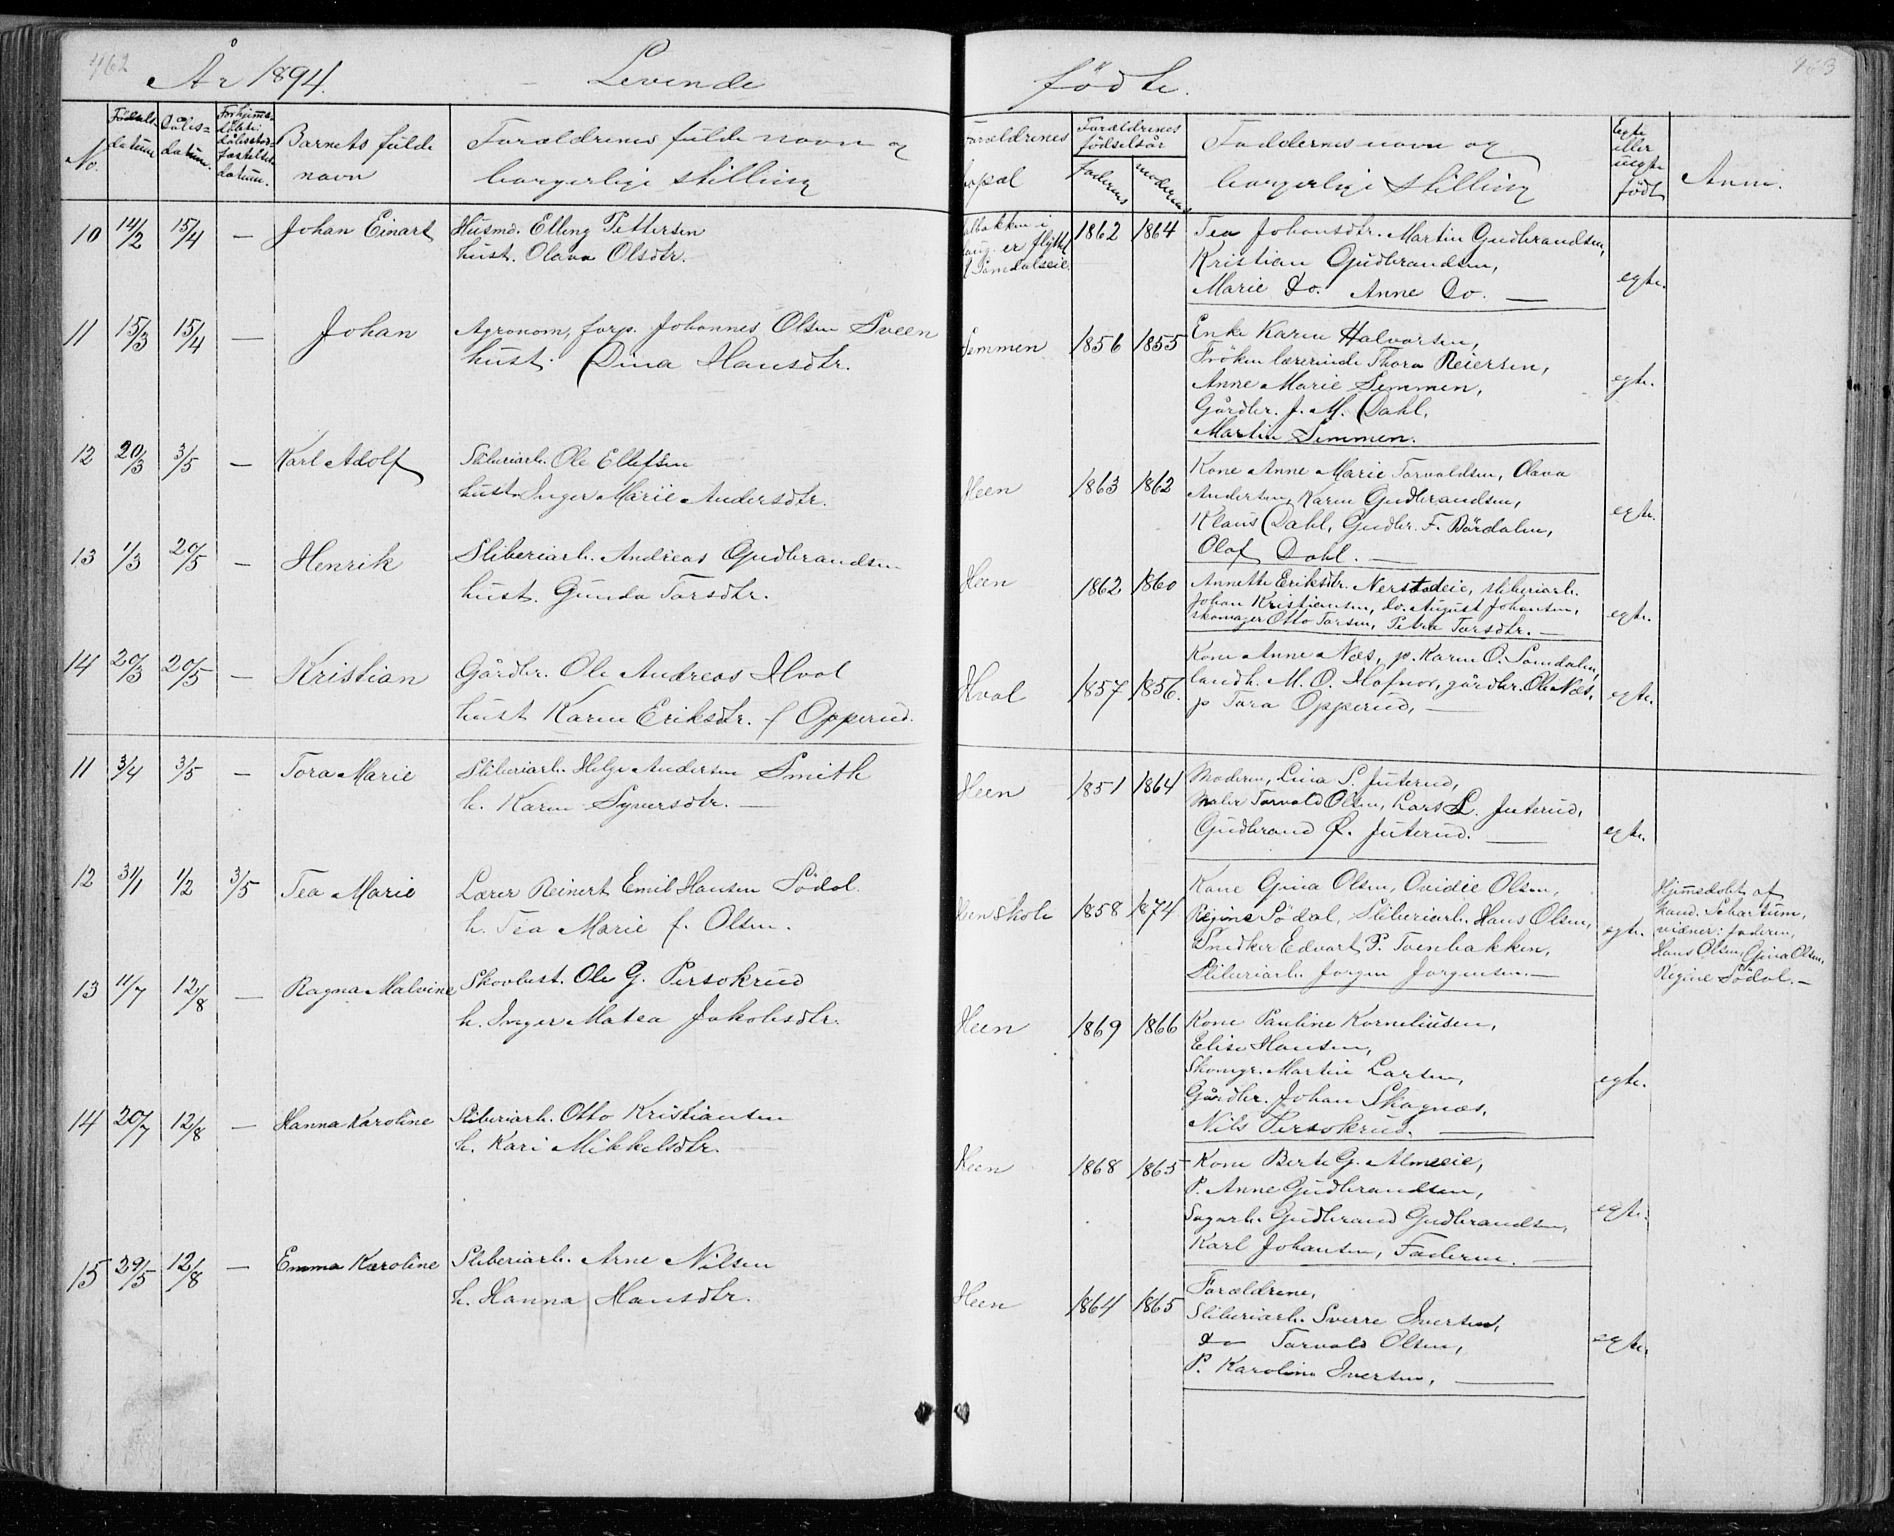 462
År 1894. – Levende
No. Fødsels-datum Dåbs-datum. Forhjemmedøbte: dåbsstadfæstelses datum. Barnets fulde navn Forældrenes fulde navn og borgerlige stilling
10 14/2 15/4 — Johan Einart Husmd. Elling Pettersen
hust. Olava Olsdtr.
11 15/3 15/4 — Johan Agronom, forp. Johannes Olsen Sveen
hust. Dina Hansdtr.
12 20/3 3/5 — Karl Adolf Sliberiarb. Ole Ellefsen
hustr. Inger Marie Andersdtr.
13 1/3 20/5 — Henrik Sliberiarb. Andreas Gudbrandsen
hust. Gunda Torsdtr.
14 20/3 20/5 — Kristian Gårdbr. Ole Andreas Hval
hust Karen Eriksdtr. f Opperud.
11 3/4 3/5 — Tora Marie Sliberiarb. Helge Andersen Smith
h. Karen Syversdtr. —
12 31/1 1/2 3/5 Tea Marie Lærer Reinert Emil Hansen Sødal.
h. Tea Marie f. Olsen.
13 11/7 12/8 — Ragna Malvine Skovbest. Ole G. Persokrud
h. Inger Matea Jakobsdtr.
14 20/7 12/8 — Hanna Karoline Sliberiarb. Otto Kristiansen
h. Kari Mikkelsdtr.
15 29/5 12/8 — Emma Karoline Sliberiarb. Arne Nilsen
h. Hanna Hansdtr.
463
fødte.
Forældrenes bopæl Forældrenes fødselsår Faderens moderens Faddernes navn og borgerlige stilling Egte eller uegte født Anm.
er flyttet 1862 1864 Tea Johansdtr. Martin Gudbrandsen,
Kristian Gudbrandsen,
Marie do. Anne do. — egte.
Semmen 1856 1855 Enke Karen Halvorsen,
Frøken lærerinde Thora Reiersen,
Anne Marie Semmen, egte.
Gårdbr. J. M. Dahl,
Martin Semmen.
Heen 1863 1862 Kone Anne Marie Torvaldsen, Olava
Andersen, Karen Gudbrandsen, egte.
Klaus Dahl, Gudbr. F. Bårdalen,
Olaf Dahl. —
Heen 1862 1860 Annette Eriksdtr. Nerstadeie, sliberiarb.
Johan Kristiansen, do. August Johansen, egte.
skomager Otto Torsen, Petra Torsdtr. —
Hval 1857 1856. Kone Anne Næs, p. Karen O. Somdalen,
landh. M. O. Hofnor, gårdbr. Ole Næs, egte.
p Tora Opperud, —
Heen 1851 1864 Moderen, Lina S. Juterud,
Maler Torvald Olsen, Lars L. Juterud, egte.
Gudbrand P. Juterud. —
Heen skole 1858 1874 Kone Gina Olsen, Ovidie Olsen,
Regine Sødal, Sliberiarb. Hans Olsen, egte.
Snedker Edvart P. Toenbakken,
Sliberiarb. Jørgen Jørgensen. —
Hjemmedøbt af
kand. Schartum,
vidner: faderen,
Hans Olsen, Gina Olsen,
Regine Sødal. —
Heen 1869 1866 Kone Pauline Korneliusen,
Elise Hansen,
Skomgr. Martin Larsen, egte.
Gårdbr. Johan Skagnæs,
Nils Persokrud. —
Heen 1868 1865 Kone Berte G. Almeeie,
P. Anne Gudbrandsen,
Sagarb. Gudbrand Gudbrandsen, egte.
Karl Johansen, Faderen. —
Heen 1864 1865 Forældrene,
Sliberiarb. Sverre Iversen,
do Torvald Olsen, egte.
P. Karoline Iversen, —